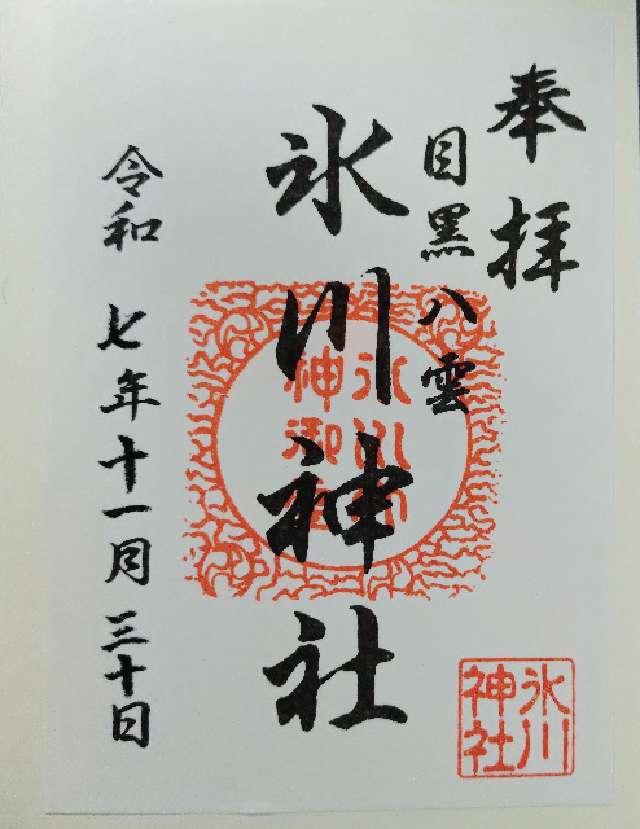 奉拝
目黒八雲
氷川神社
令和七年十一月三十日
氷川
神社